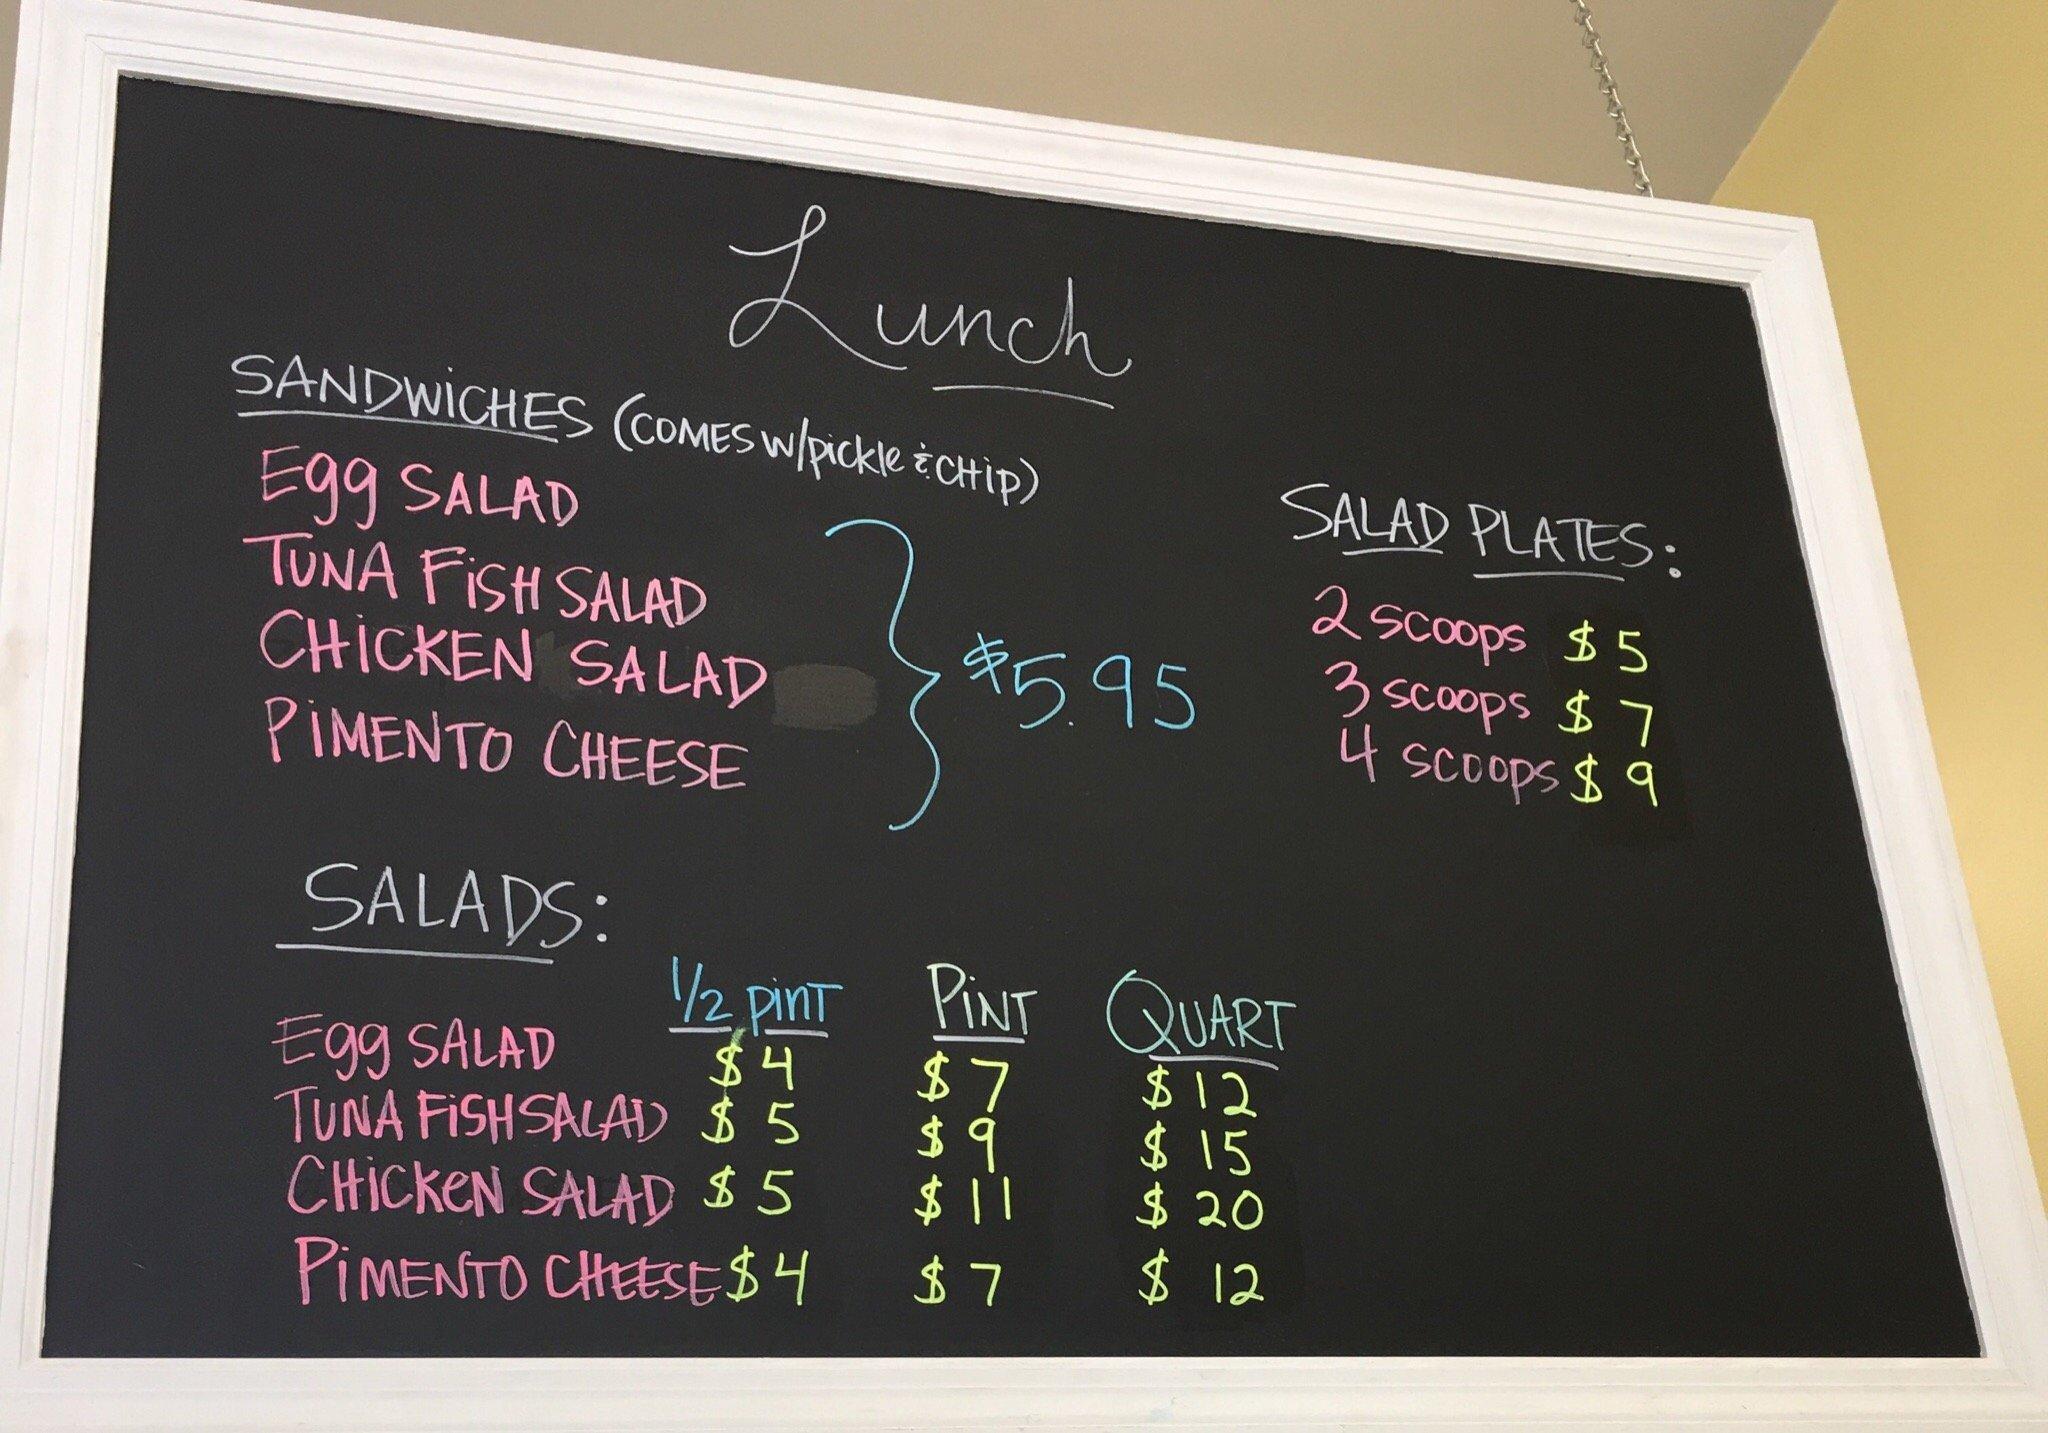 Lunch
SANDWICHES (COMES W/pickle & CHIP)
Egg SALAD
TUNA FISH SALAD
CHICKEN SALAD
PIMENTO CHEESE
$5.95
SALAD PLATES:
2 SCOOPS $5
3 SCOOPS $7
4 SCOOPS $9
SALADS:
1/2 pint PINT QUART
Egg SALAD $4 $7 $12
TUNA FISH SALAD $5 $9 $15
CHICKEN SALAD $5 $11 $20
PIMENTO CHEESE $4 $7 $12